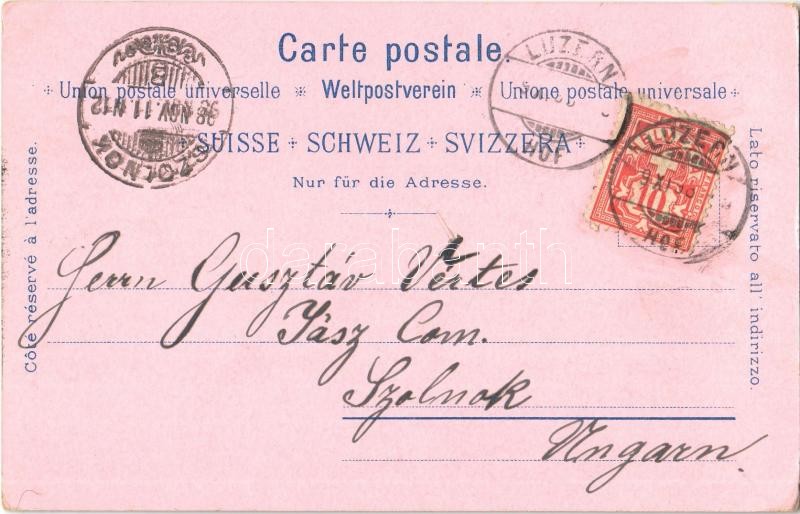 Carte postale.
Union postale universelle Weltpostverein Unione postale universale
SUISSE SCHWEIZ SVIZZERA
Nur für die Adresse.
Côté réservé à l'adresse.
Lato riservato all' indirizzo.
LUZERN
HOF
LUZERN
9.XI.98
HOF
10
SZOLNOK
98 NOV. 11. N12
darabanth
Herrn Gusztáv Vértes
Jász Com.
Szolnok
Ungarn.